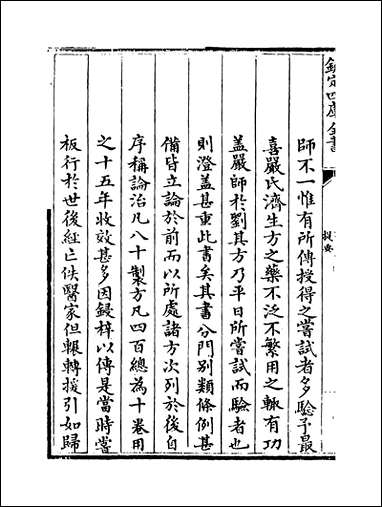 欽定四庫全書
提要
師不一惟有所傳授得之嘗試者多驗予最
喜嚴氏濟生方之藥不泛不繁用之輙有功
盖嚴師於劉其方乃平日所嘗試而驗者也
則澄盖甚重此書矣其書分門别類條例甚
備皆立論於前而以所處諸方次列於後自
序稱論治凡八十製方凡四百總為十卷用
之十五年收效甚多因鋟梓以傳是當時嘗
板行於世後經亡佚醫家但輾轉援引如歸